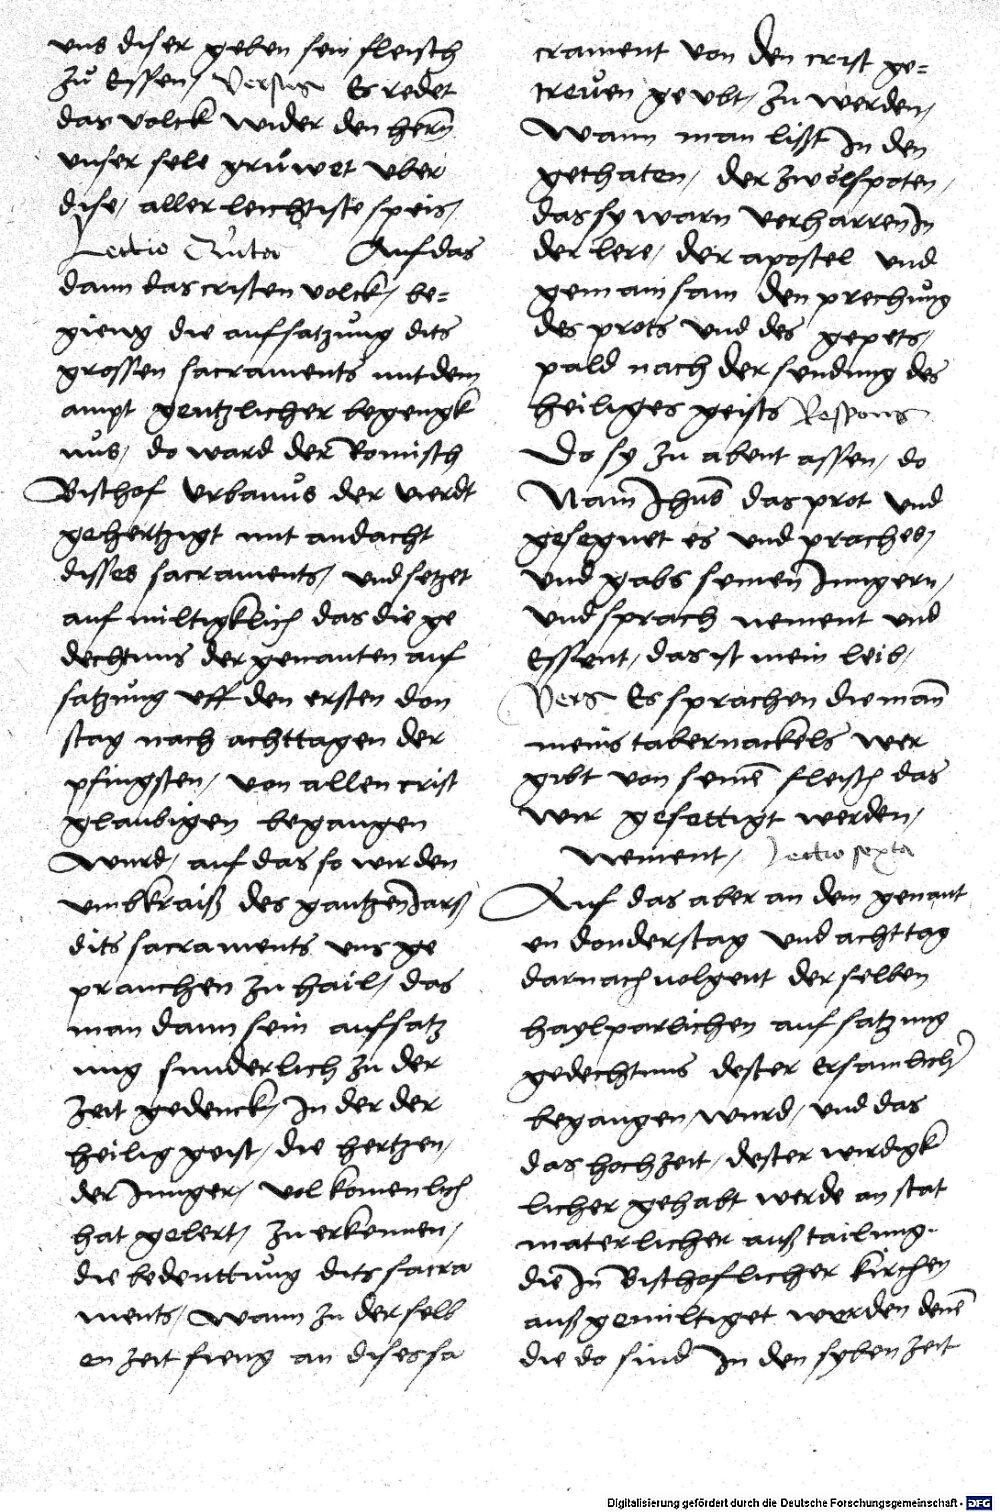 uns diser geben sein fleisch
zů Essen / Versus Es redet
das volck wider den hern̄
unser sele grůwet vber
dise / aller leichtiste speis /
Lectio Quita Auf das
dann das cristen volck / be=
gieng die aufsatzůng dits
grossen sacraments mit dem
ampt gentzlicher begengk
nůs / do ward der Romisch
Bischof Urbanůs der vierdt
gehertzigt mit andacht
disses sacraments / und setzet
auf miltigklich das die ge
dechtnus der genanten auf
satzůng uff den ersten don
stag nach achttagen der
pfingsten / von allen crist
glaubigen begangen
wurd / auf das so wir den
umbkraiß des gantzen Jars
dits sacraments uns ge
prauchen zu hail / das
man dann sein aufsatz
ung sunderlich zu der
zeit gedenck / In der der
heilig geist / die hertzen /
der Junger / volkomenlich
hat gelert / zu erkennen /
die bedeuttůng dits sacra
ments / wann zu der selb
en zeit fieng an dises sa
crament von den crist ge=
treůen geubt / zu werden /
wann man lißt In den
gethaten / der zwölfpoten /
das sy warn verharren In
der lere / der apostel und
gemainsam den prechůng
des prots und des gepets /
pald nach der sendung des
heiliges geists Respons
Do sy zu abent assen / do
Nam Jhus̄ das prot und
gesegnet es und prach es /
und gabs seinen Jungern /
und sprach nement und
Essent / das ist mein leib /
Vers Es sprachen die man̄
meins tabernackels wer
gibt von seinē fleisch das
wir gesettigt werden /
Nement / Lectio sexta
Auf das aber an dem genant
en donderstag und acht tag
darnach volgent der selben
haylparlichen aufsatzung
gedechtnus dester ersamlich
begangen / wurd / und das
das hochzeit / dester wirdigk
licher gehabt werde an stat
materlicher auß tailung.
die In Bischoflicher kirchen
auß gemiltiget werden denē
die do sind In den syben zeit
Digitalisierung gefördert durch die Deutsche Forschungsgemeinschaft - DFG